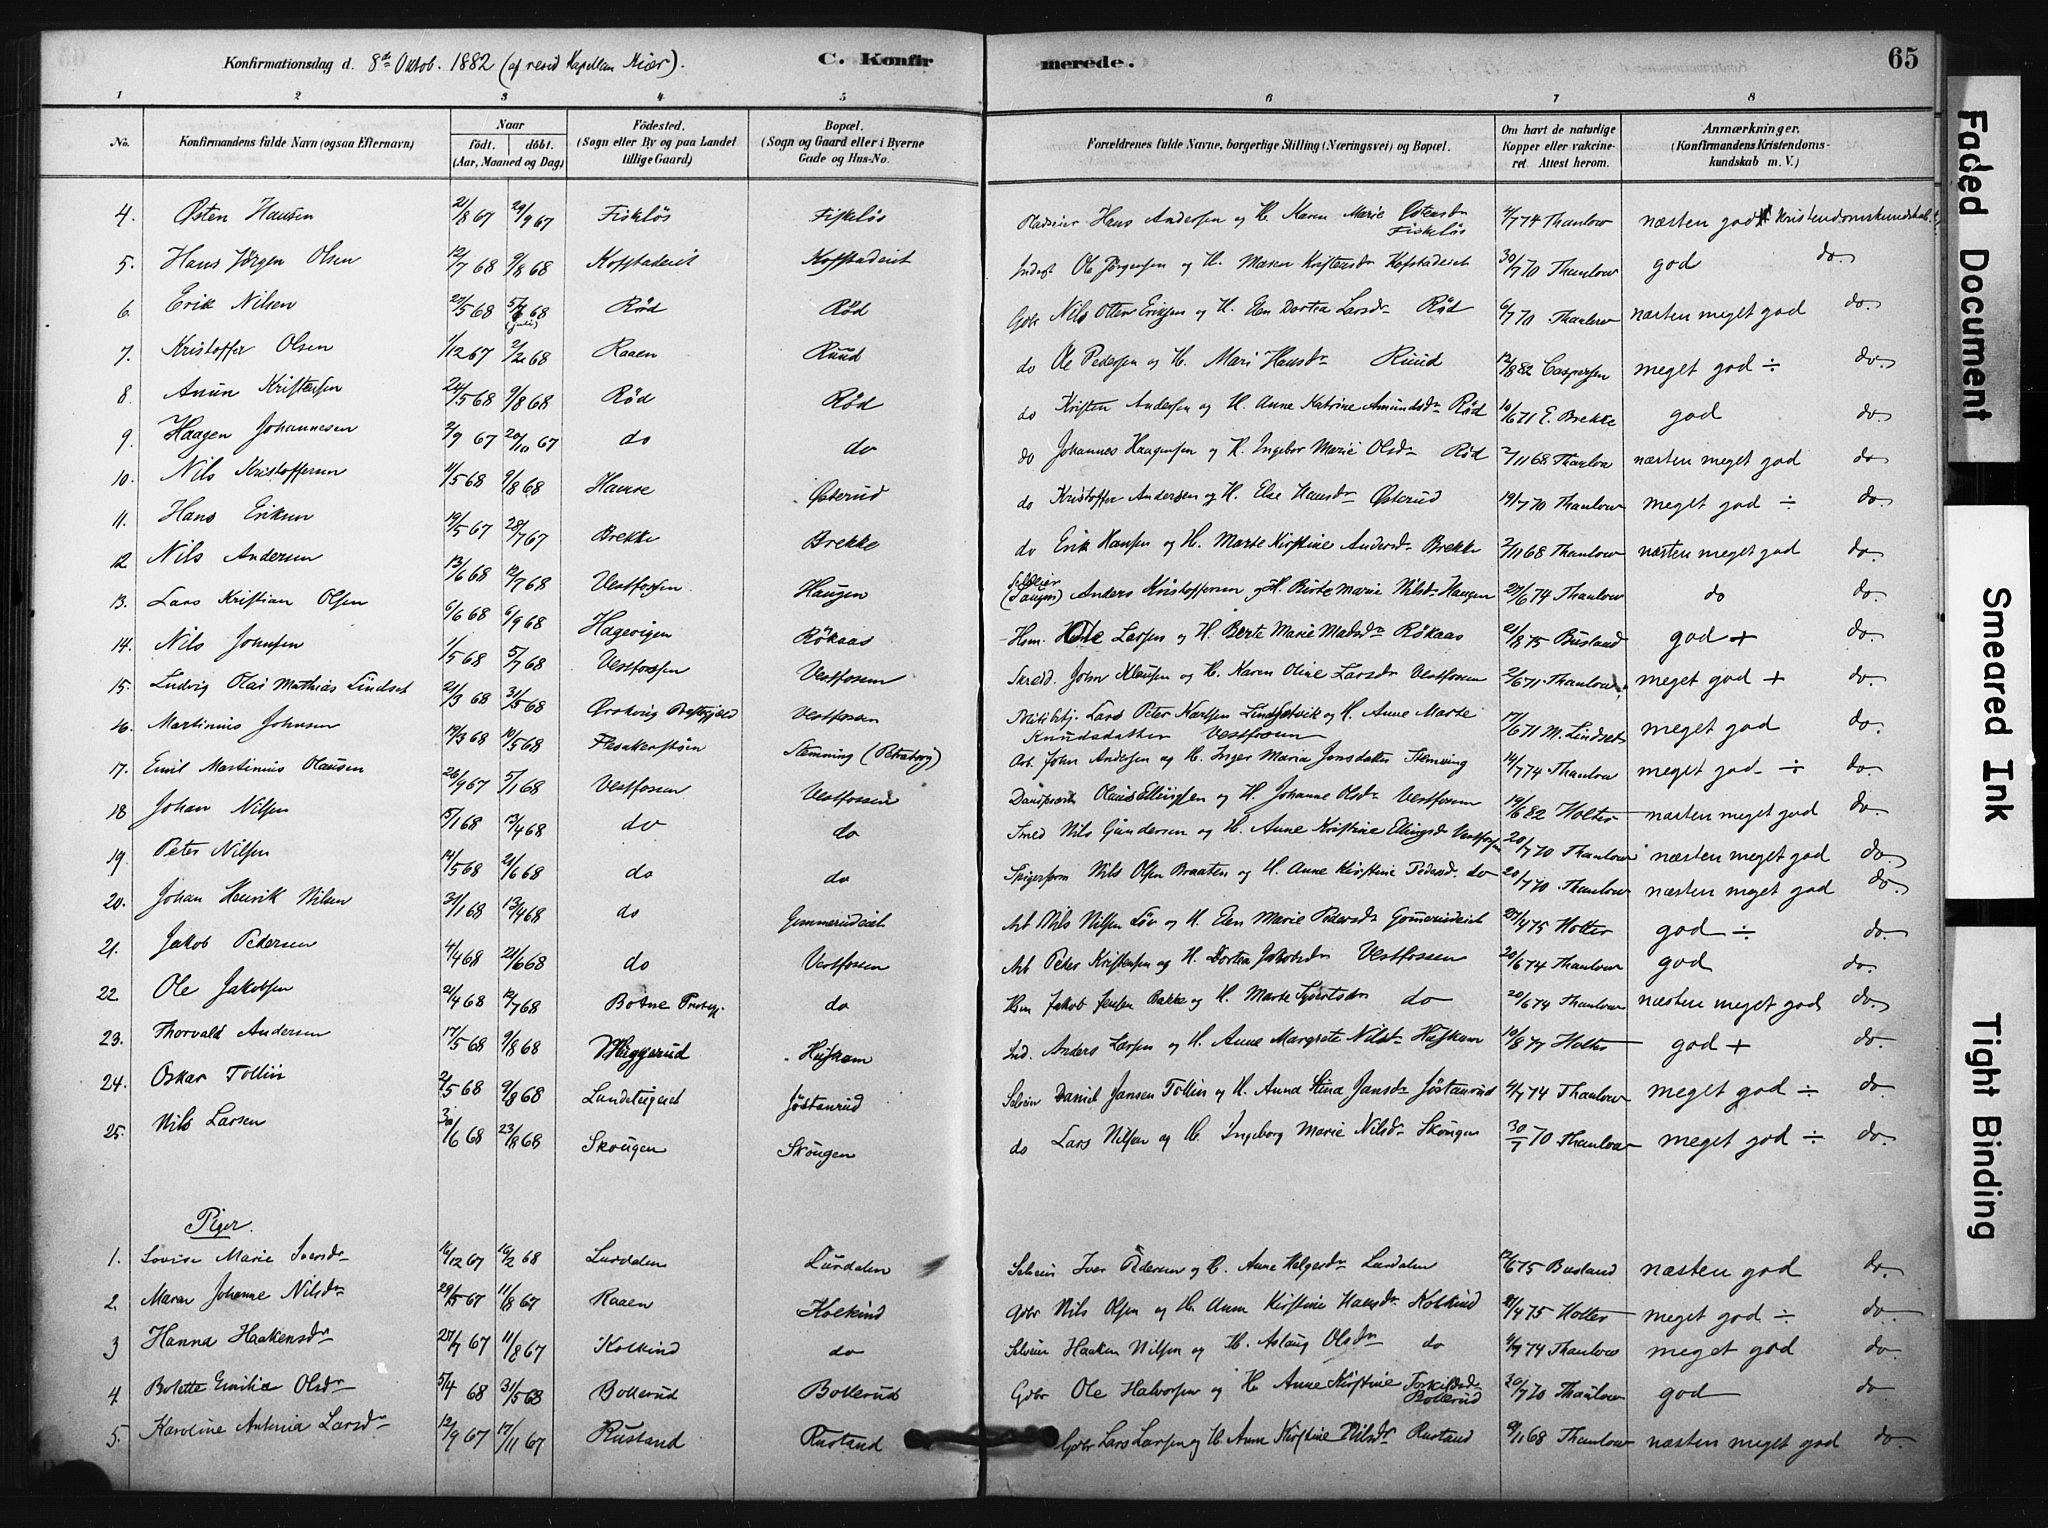 Konfirmationsdag d. 8de Oktob. 1882 (af resid Kapellan Kiær). C. Konfirmerede. 65
1 2 3 4 5 6 7 8
No. Konfirmandens fulde Navn (ogsaa Efternavn) Naar født. døbt. (Aar, Maaned og Dag) Fødested. (Sogn eller By og paa Landet tillige Gaard) Bopæl. (Sogn og Gaard eller i Byerne Gade og Hus-No. Forældrenes fulde Navne, borgerlige Stilling (Næringsvei) og Bopæl. Om havt de naturlige Kopper eller vakcineret. Attest herom. Anmærkninger. (Konfirmandens Kristendomskundskab m. V.)
4. Østen Hansen 21/8 67 29/9 67 Fiskløs Fiskløs Pladseier Hans Andersen og H. Karen Marie Østensdr Fiskløs 4/7 74 Thaulow næsten god Kristendomskundskab
5. Hans Jørgen Olsen 12/7 68 9/8 68 Kofstadeit Kofstadeit Inderst Ole Jørgensen og H. Maren Kristensdr Kofstadeiet 30/7 70 Thaulow god do.
6. Erik Nilsen 29/5 68 5/7 68 (Juli) Rød Rød Gdbr Nils Otter Eriksen og H. Elen Dortea Larsdr Rød 6/7 70 Thaulow næsten meget god do.
7. Kristoffer Olsen 1/12 67 2/2 68 Raaen Ruud do Ole Pedersen og H. Mari Hansdr Ruud 12/8 82 Caspersen meget god ÷ do.
8. Anun Kristensen 24/5 68 9/8 68 Rød Rød do Kristen Andersen og H. Anne Katrine Amundsdr Rød 10/6 71 E. Brekke god do
9. Haagen Johannesen 2/9 67 20/10 67 do do do Johannes Haagensen og H. Ingebor Marie Olsdr Rød 2/11 68 Thaulow næsten meget god do
10. Nils Kristoffersen 11/5 68 9/8 68 Hanse Østerud do Kristoffer Andersen og H. Else Hansdr Østerud 19/7 70 Thaulow meget god ÷ do.
11. Hans Eriksen 19/5 67 28/7 67 Brekke Brekke do Erik Hansen og H. Marte Kirstine Andersdr Brekke 2/11 68 Thaulow næsten meget god do.
12 Nils Andersen 13/6 68 12/7 68 Vestfossen Haugen Seleier (Haugen) Anders Kristoffersen og H. Birte Marie Nilsdr Haugen 20/6 74 Thaulow do do.
13. Lars Kristian Olsen 6/6 68 6/9 68 Hagevigen Røkaas Hsm. Ole Larsen og H. Berte Marie Madsdr Røkaas 21/8 75 Busland god + do.
14. Nils Johnsen 1/5 68 5/7 68 Vestfossen Vestfossen Skredd. John Klausen og H. Karen Oline Larsdr Vestfossen 2/6 71 Thaulow meget god + do.
15. Ludvig Olai Mathias Lindset 21/3 68 31/5 68 Ørskoug Vestfossen Lars Peter Lindsetvik og H. Anne Marte Knudsdatter Vestfossen 17/6 71 M. Lindset meget god do.
16. Martinius Johnsen 19/3 68 10/5 68 Flesakerstøen Stemning Arb. John Andersen og H. Inger Maria Jonsdatter Stemning 14/7 74 Thaulow meget god ÷ do.
17. Emil Martinius Olausen 26/9 67 5/1 68 Vestfossen Vestfossen Olaus Ellingsen og H. Johanne Olsdr Vestfossen 19/6 82 Holter næsten meget god do.
18 Johan Nilsen 5/1 68 13/4 68 do do Smed Nils Gundersen og H. Anne Kristine Ellingsdr Vestfossen 20/7 70 Thaulow næsten meget god do.
19. Peter Nilsen 14/5 68 21/6 68 do do Nils Olsen Braaten og H. Anne Kirstine Pedersdr do 20/7 70 Thaulow næsten meget god do.
20. Johan Henrik Nilsen 31/1 68 13/4 68 do Gommerudeiet Arb Nils Nilsen Løv og H. Elen Marie Pedersdr Gomerudeiet 27/4 75 Holter god ÷ do.
21. Jakob Pedersen 4/4 68 21/6 68 do Vestfossen Arb Peter Kristensen og H. Dortea Jakobsdr Vestfossen 20/6 74 Thaulow god do.
22 Ole Jakobsen 21/4 68 12/7 68 Botne Prestegj. do Hsm Jakob Jensen Bakke og H. Marte Sjovertsdr do 20/6 74 Thaulow næsten meget god do.
23. Thorvald Andersen 17/5 68 9/8 68 Wiggerud Ind. Anders Larsen og H. Anne Margrete Nilsdr 10/8 77 Holter god + do.
24. Oskar Tollin 2/5 68 9/8 68 Lundteigeiet Jøstanrud Seleier Daniel Jansen Tollin og H. Anna Stina Jansdr Jøstanrud 4/7 74 Thaulow meget god ÷ do
25. Nils Larsen 30/6 68 23/8 68 Skougen Skougen do Lars Nilsen og H. Ingeborg Marie Nilsdr Skougen 30/7 70 Thaulow meget god ÷ do.
Piger.
1. Lovise Marie Iversdr 16/12 67 16/2 68 Lurdalen Lurdalen Seleier Iver Pedersen og H. Anne Helgesdr Lurdalen 12/6 75 Busland næsten god do.
2. Maren Johanne Nilsdr 29/5 67 11/8 67 Raaen Kolkind Gdbr Nils Olsen og H. Anne Kirstine Hansdr Kolkind 21/4 75 Holter meget god ÷ do.
3 Hanna Haakensdr 27/7 67 11/8 67 Kolkind do Seleier Haaken Nilsen og H. Aslaug Olsdr do 4/7 74 Thaulow meget god do.
4. Bolette Emilie Olsdr 5/4 68 31/5 68 Bollerud Bollerud Gdbr Ole Halvorsen og H. Anne Kirstine Torkildsdr Bollerud 30/7 70 Thaulow god do
5. Karoline Antonia Larsdr 12/9 67 17/11 67 Rustand Rustand Gdbr Lars Larsen og H. Anne Kirstine Nilsdr Rustand 9/11 68 Thaulow næsten meget god do.
Faded Document
Smeared Ink
Tight Binding